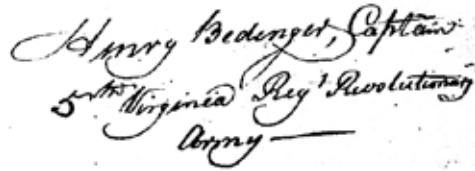 Henry Bedenger, Captain
5th Virginia Reg't Revolutionary
Army —